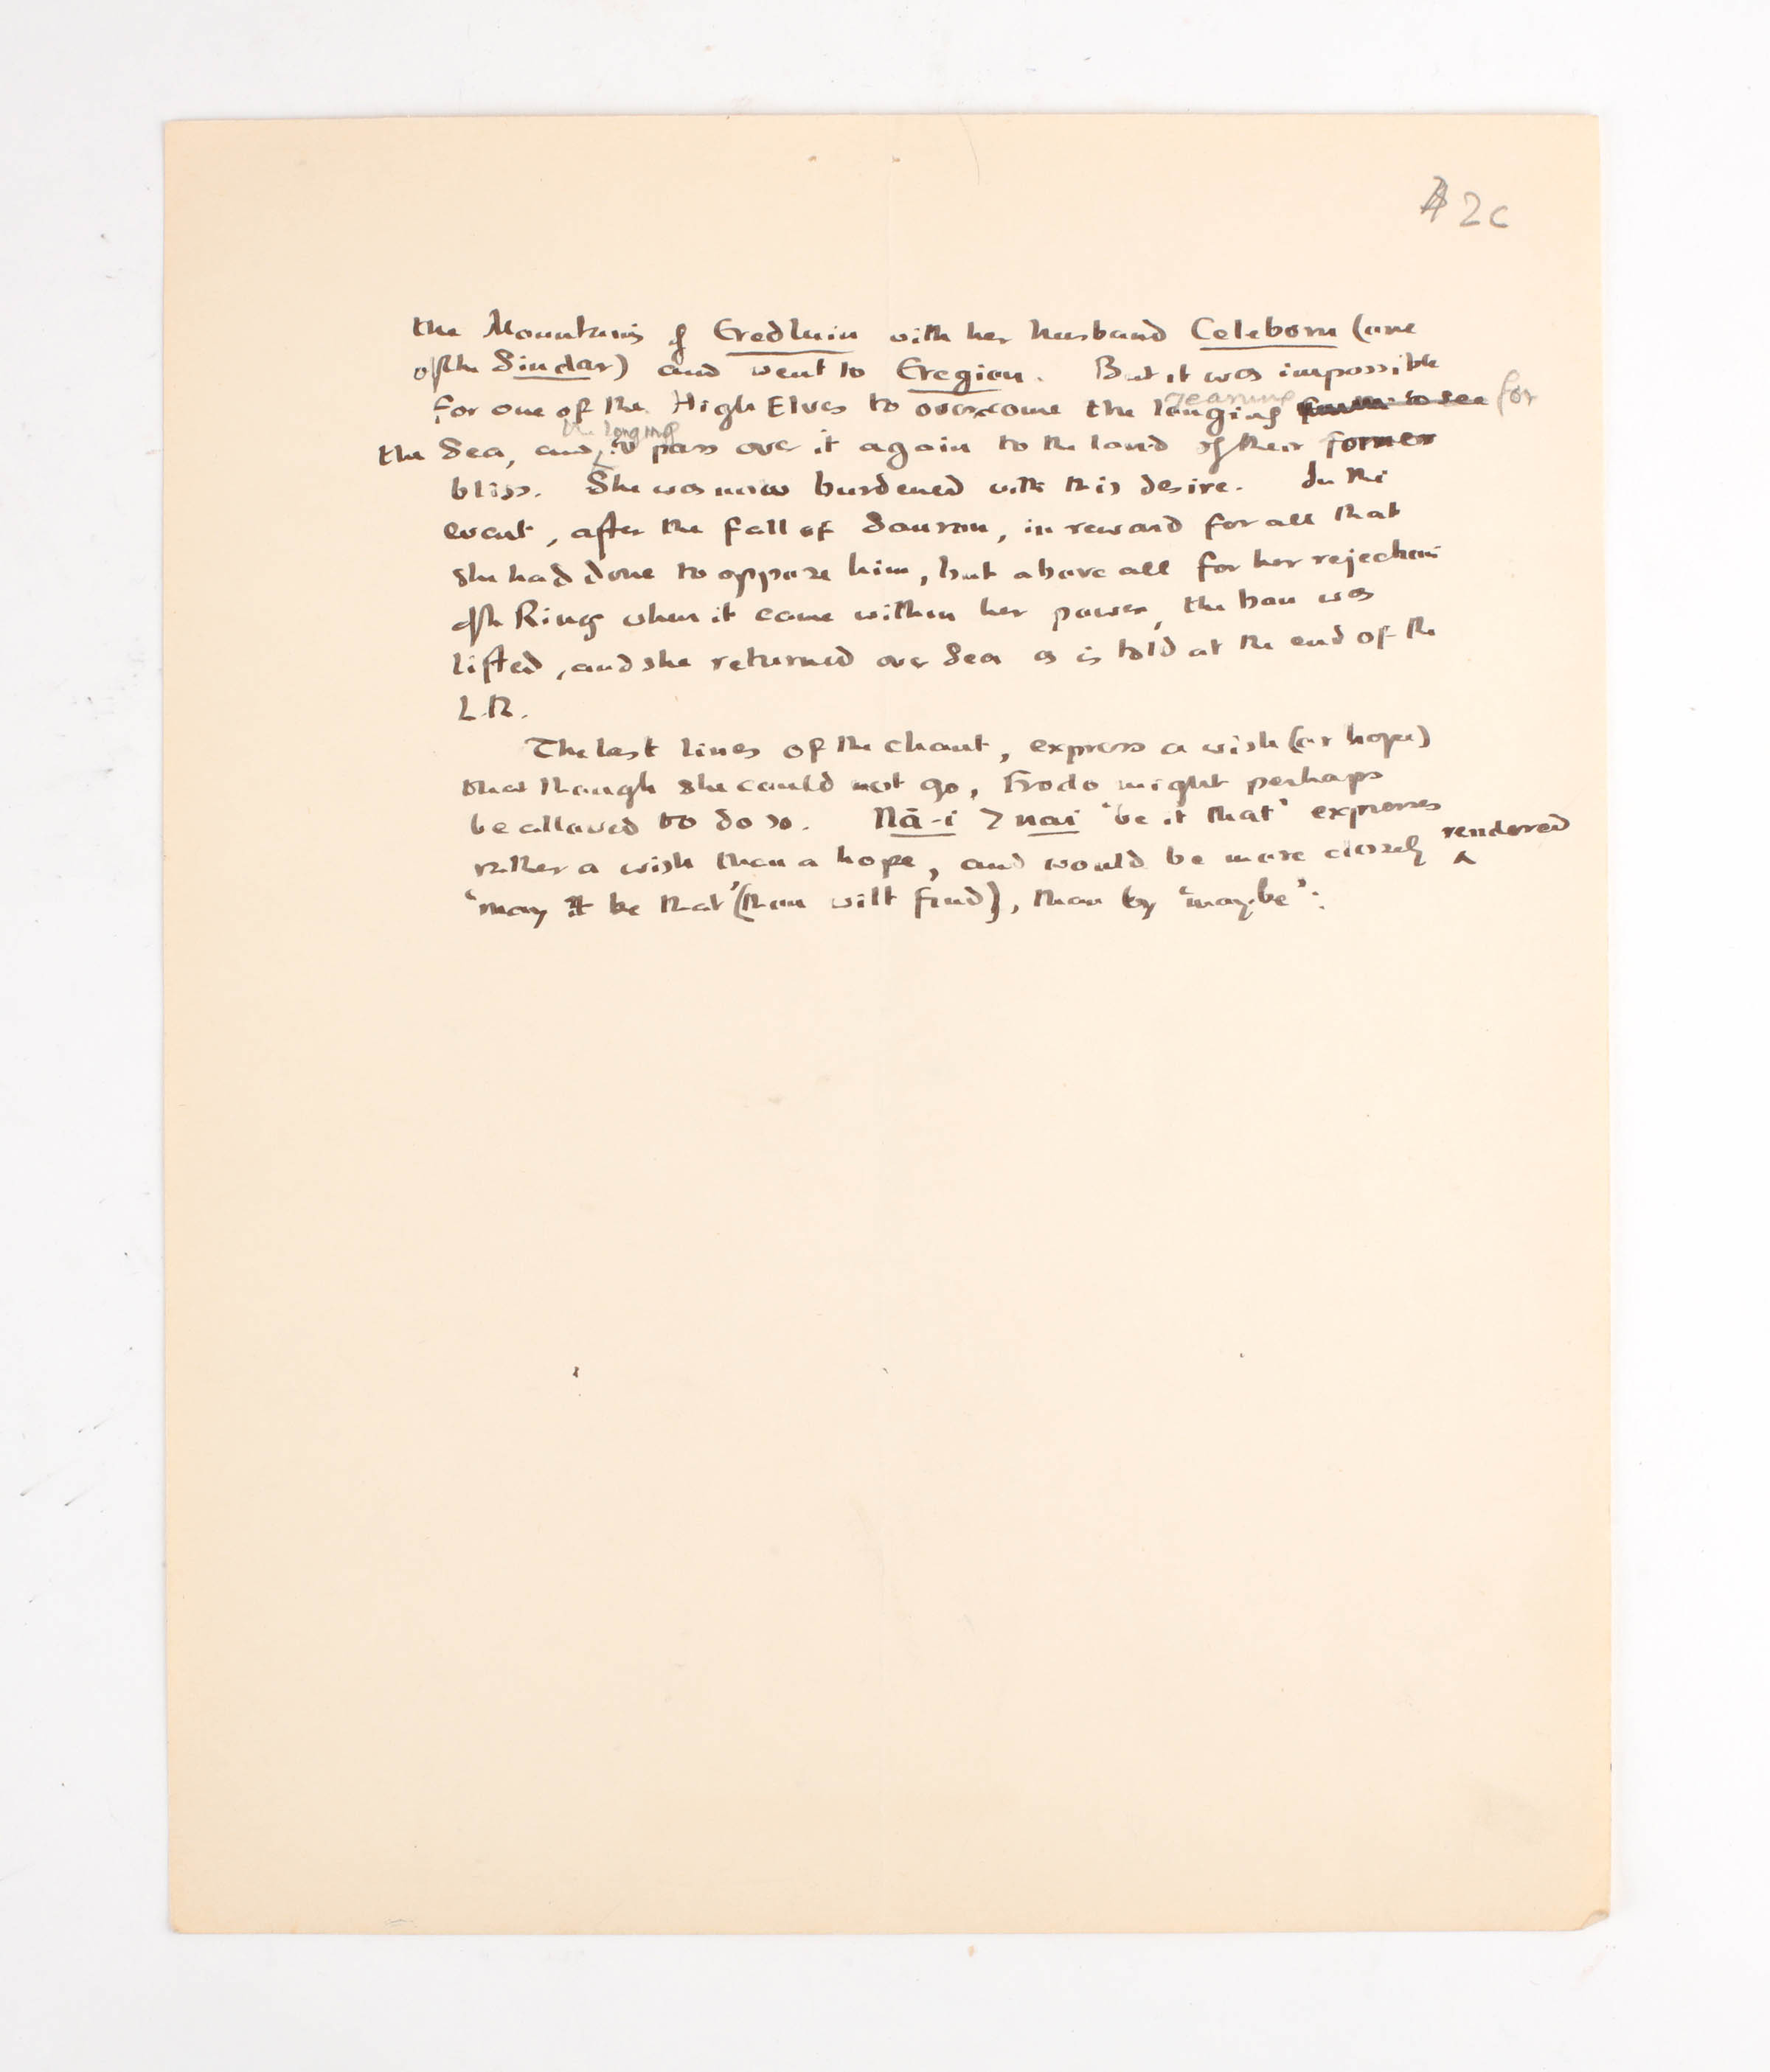 2c
the Mountains of Eredluin with her husband Celeborn (one
of the Sindar) and went to Eregion. But it was impossible
yearning
for one of the High Elves to overcome the longing to see for
the longing
the Sea, and to pass over it again to the land of their former
bliss. She was now burdened with this desire. In the
event, after the fall of Sauron, in reward for all that
she had done to oppose him, but above all for her rejection
of the Ring when it came within her power, the ban was
lifted, and she returned over Sea as is told at the end of the
L.R.
The last lines of the chant, express a wish (or hope)
that though she could not go, Frodo might perhaps
be allowed to do so. Nā-i > nai 'be it that' expresses
rather a wish than a hope, and would be more closely rendered
'may it be that' (thou wilt find), than by 'maybe'.